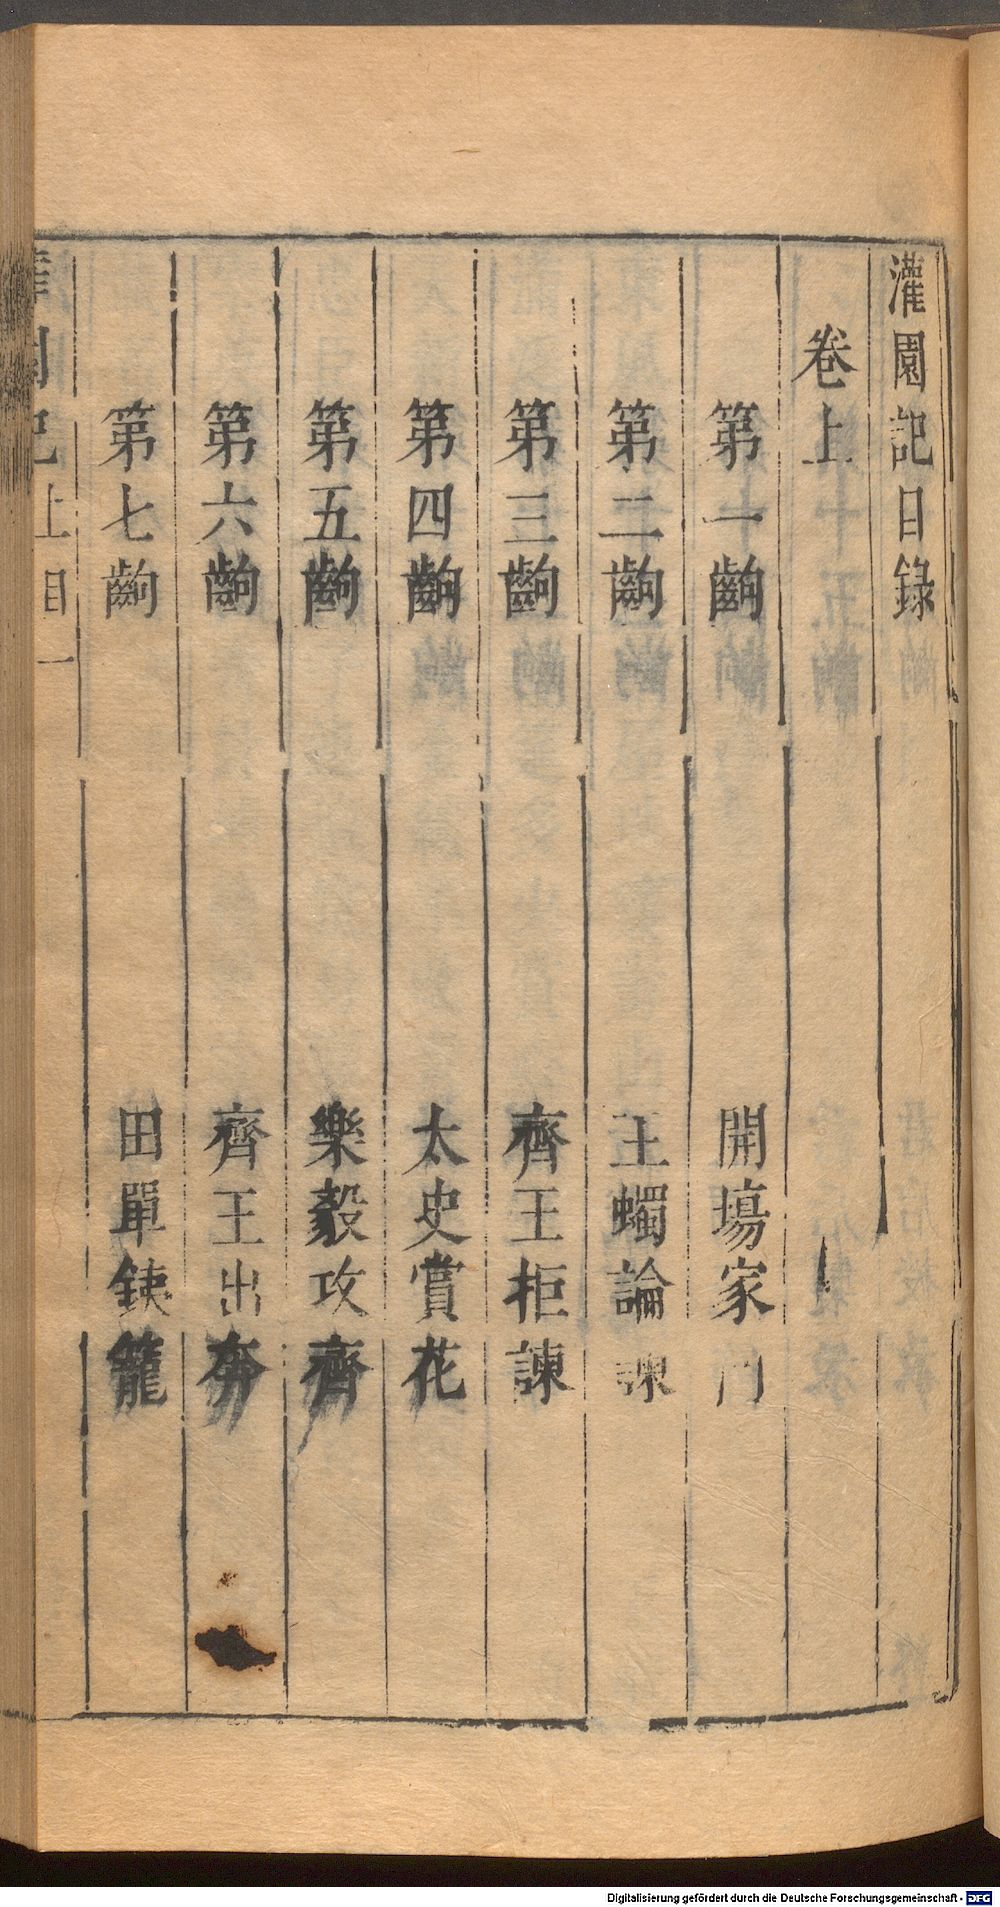 灌園記目錄
卷上
第一齣 開場家門
第二齣 王蠋論諫
第三齣 齊王拒諫
第四齣 太史賞花
第五齣 樂毅攻齊
第六齣 齊王出奔
第七齣 田單鋏籠
園記上目一
Digitalisierung gefördert durch die Deutsche Forschungsgemeinschaft - DFG